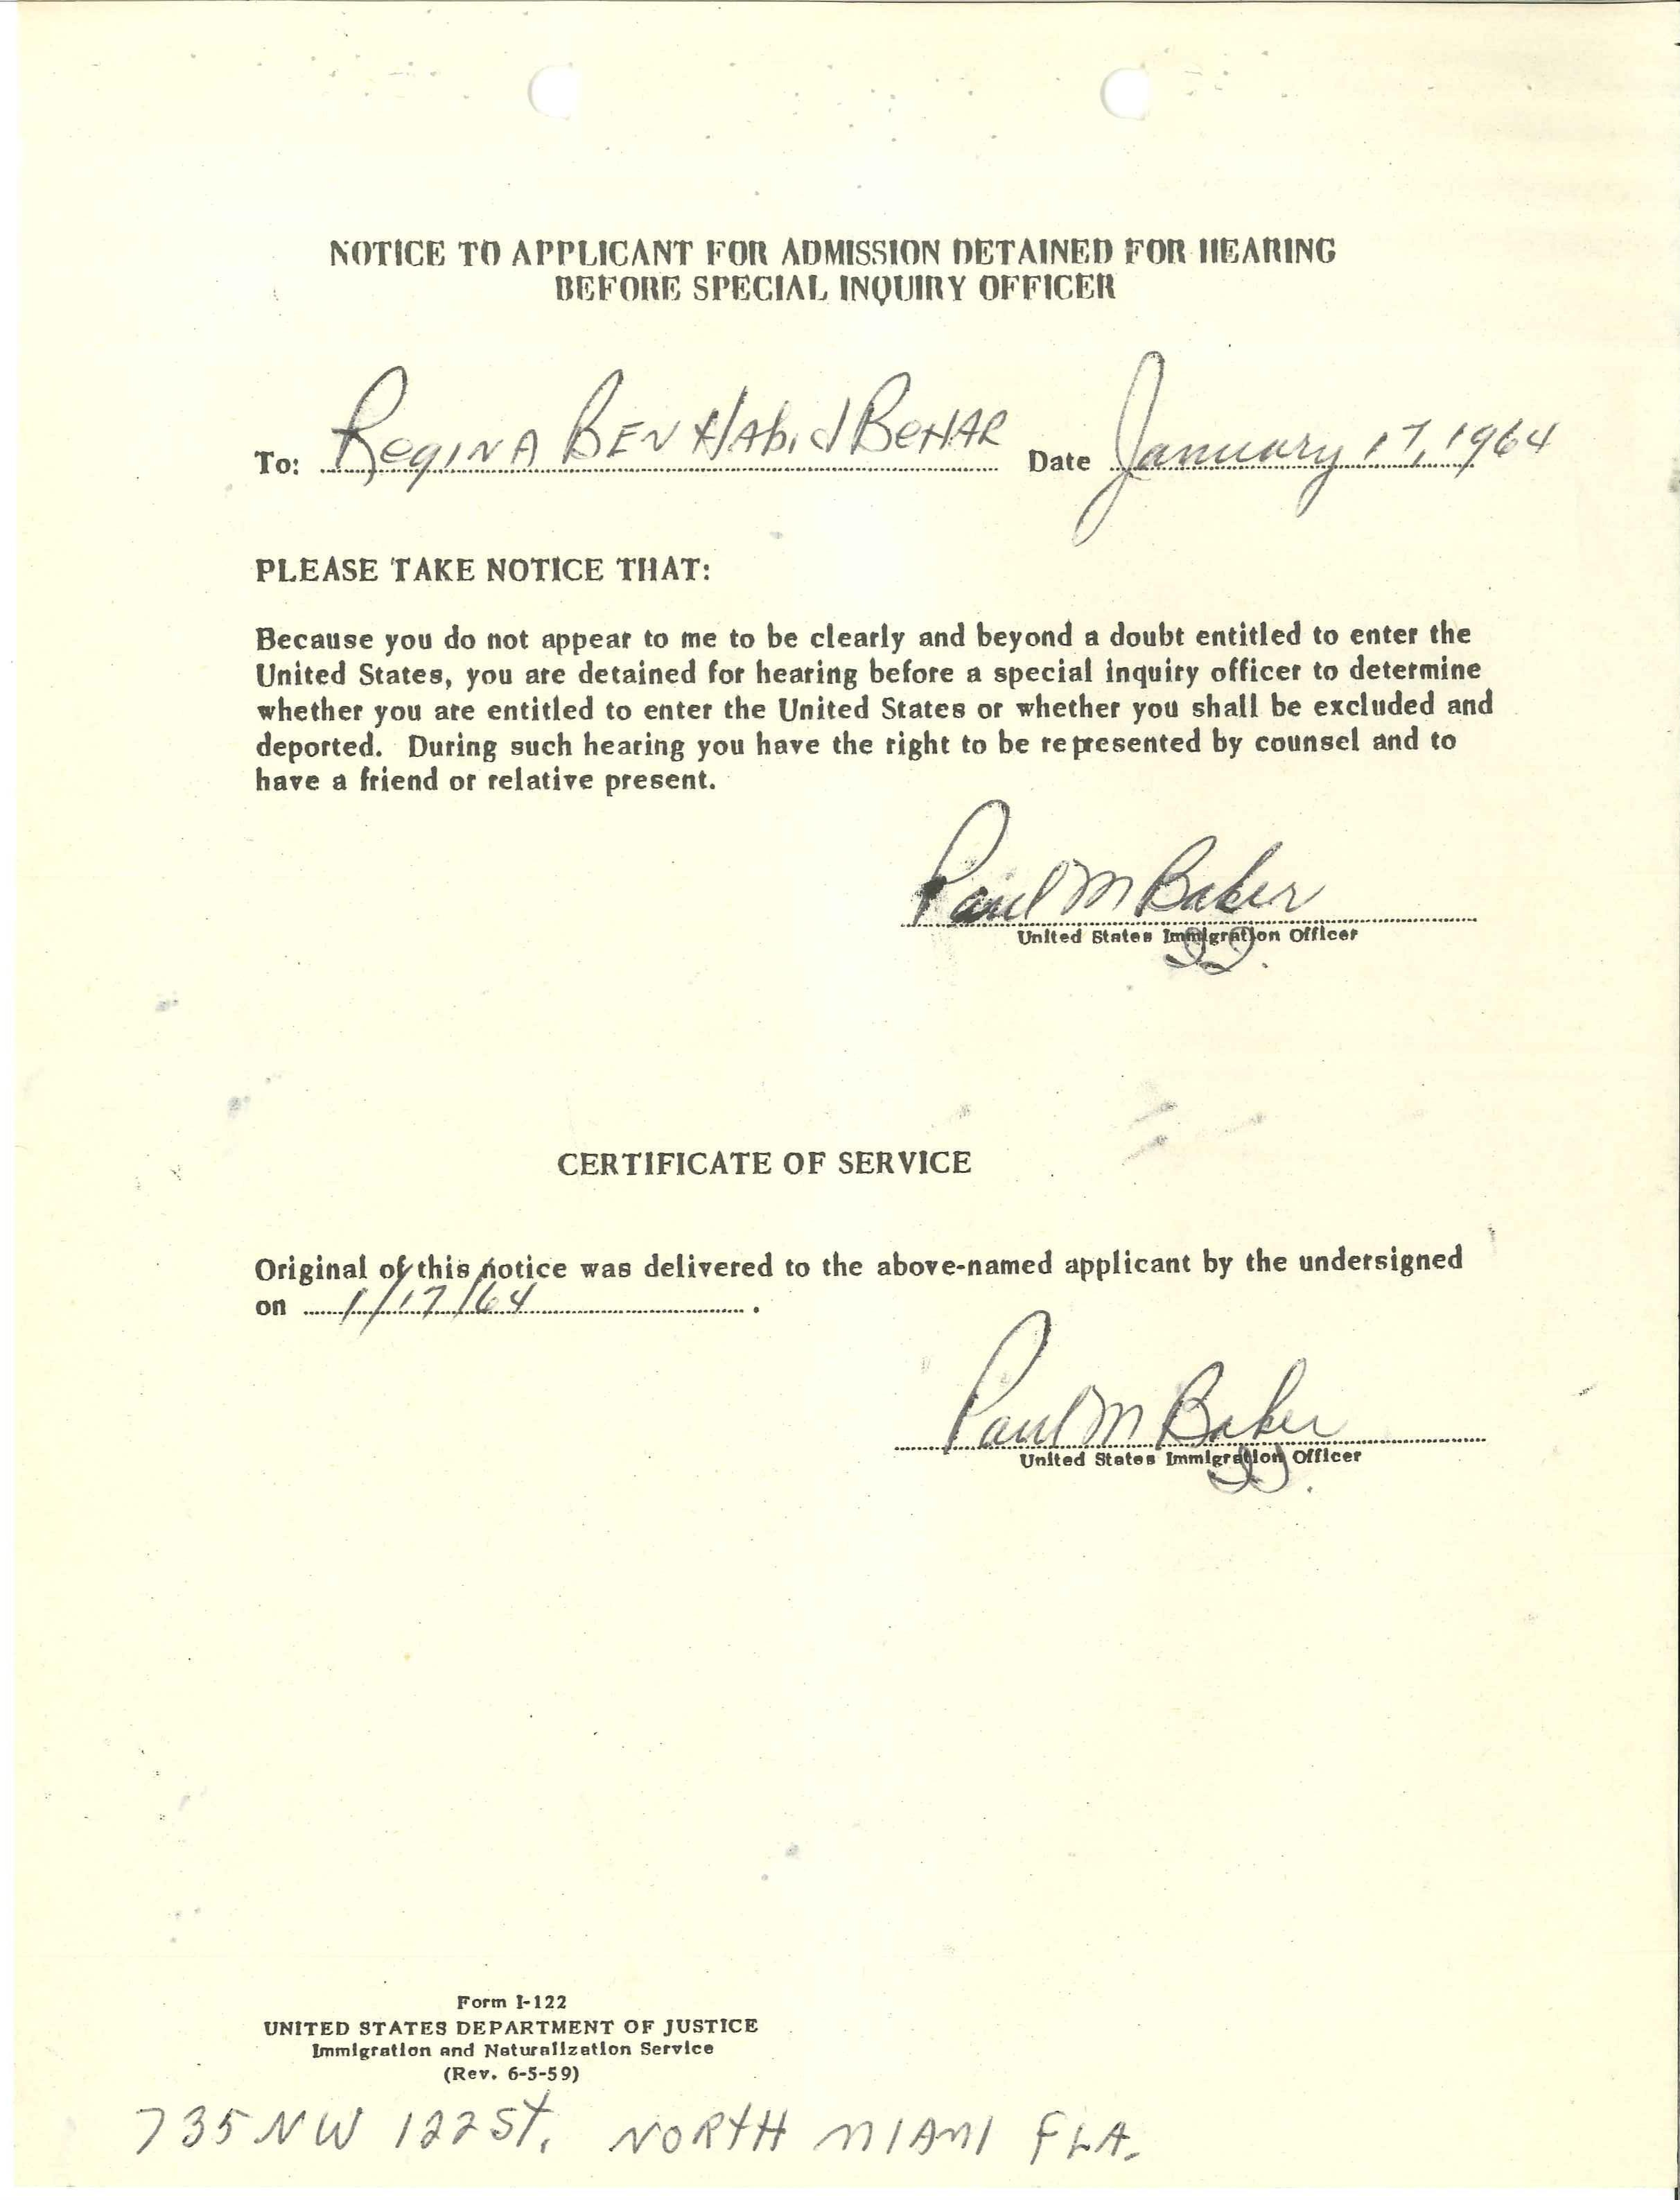 NOTICE TO APPLICANT FOR ADMISSION DETAINED FOR HEARING
BEFORE SPECIAL INQUIRY OFFICER
To: Regina Ben Habid Behar Date January 17, 1964
PLEASE TAKE NOTICE THAT:
Because you do not appear to me to be clearly and beyond a doubt entitled to enter the
United States, you are detained for hearing before a special inquiry officer to determine
whether you are entitled to enter the United States or whether you shall be excluded and
deported. During such hearing you have the right to be represented by counsel and to
have a friend or relative present.
Paul M Baker
United States Immigration Officer
CERTIFICATE OF SERVICE
Original of this notice was delivered to the above-named applicant by the undersigned
on 1/17/64.
Paul M Baker
United States Immigration Officer
Form I-122
UNITED STATES DEPARTMENT OF JUSTICE
Immigration and Naturalization Service
(Rev. 6-5-59)
735 NW 122 St. NORTH MIAMI FLA.